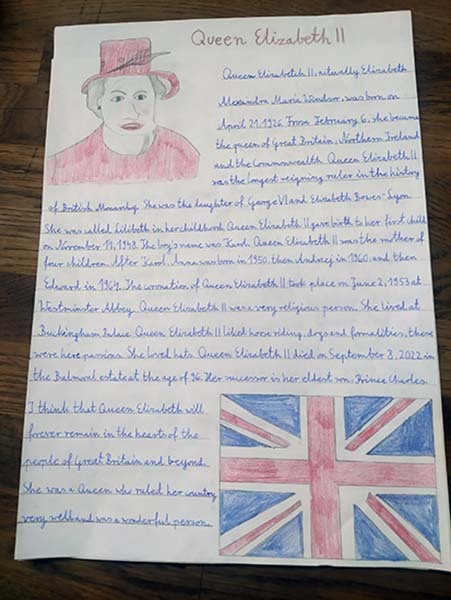 Queen Elizabeth II
Queen Elizabetch II, actually Elizabeth
Alexandra Maria Windsor, was born on
April 21.1926. From February 6, she became
the queen of Great Britain, Northern Ireland
and the Commonwealth. Queen Elizabeth II
was the longest reigning ruler in the history
of British Monarchy. She was the daughter of George VI and Elizabeth Bowes-Lyon.
She was called Lilibeth in her childhood. Queen Elizabeth II gave birth to her first child
on November 14, 1948. The boy's name was Karol. Queen Elizabeth II was the mother of
four children. After Karol, Anna was born in 1950, then Andrzej in 1960, and then
Edward in 1964. The coronation of Queen Elizabeth II took place on June 2, 1953 at
Westminster Abbey. Queen Elizabeth II was a very religious person. She lived at
Buckingham Palace. Queen Elizabeth II liked horse riding, dogs and formalities, these
were here passions. She loved hats. Queen Elizabeth II died on September 8, 2022 in
the Balmoral estate at the age of 96. Her successor is her eldest son, Prince Charles.
I think that Queen Elizabeth will
forever remain in the hearts of the
people of Great Britain and beyond.
She was a Queen who ruled her country
very well and was a wonderful person.